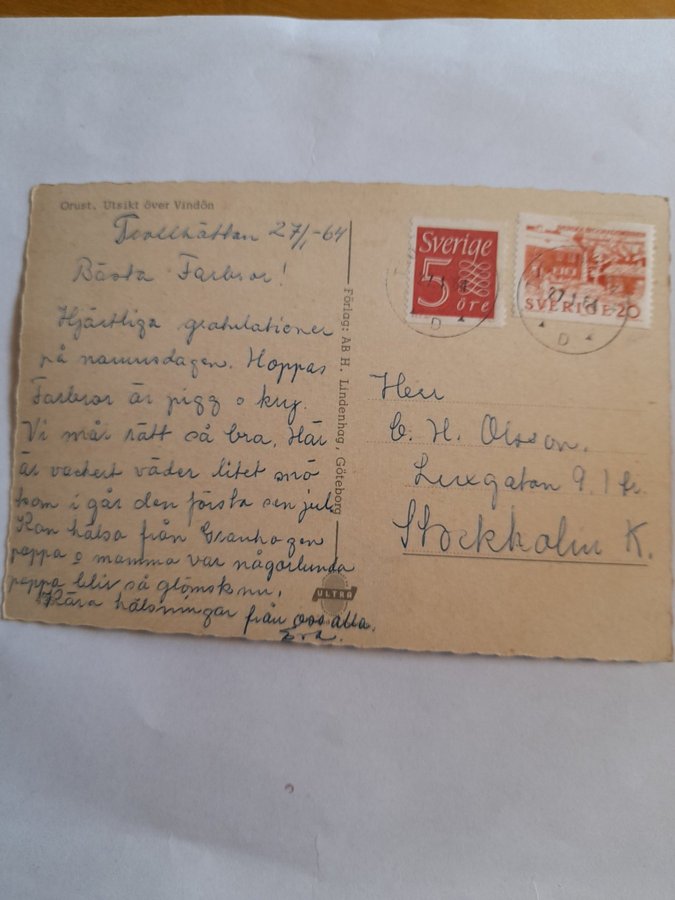 Orust. Utsikt över Vindön
Trollhättan 27/1-64
Bästa Farbror!
Hjärtliga gratulationer
på namnsdagen. Hoppas
Farbror är pigg o kry.
Vi mår rätt så bra. Här
är vackert väder litet snö
kom i går den första sen jul.
Kan hälsa från Granhagen
pappa o mamma var någorlunda
pappa blir så glömsk nu.
Kära hälsningar från oss alla.
Förlag: AB H. Lindenhag, Göteborg
ULTRA
Sverige
5
öre
SVERIGE 20
Herr
C. H. Olsson.
Luxgatan 9. 1 tr.
Stockholm K.